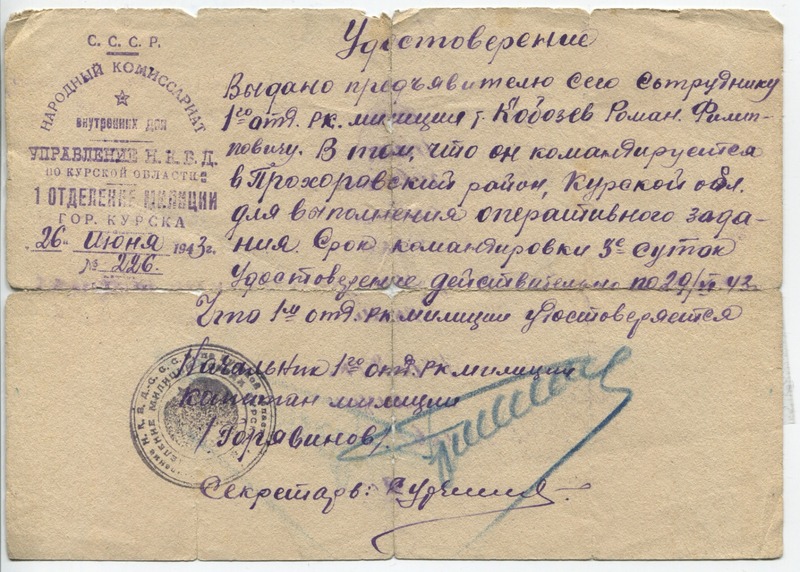 С. С. С. Р.
НАРОДНЫЙ КОМИССАРИАТ
внутренних дел
УПРАВЛЕНИЕ Н. К. В. Д.
ПО КУРСКОЙ ОБЛАСТИ
1 ОТДЕЛЕНИЕ МИЛИЦИИ
ГОР. КУРСКА
"26" Июня 1943 г.
№ 226.
Удостоверение
Выдано предъявителю сего сотруднику
1го отд. рк. милиции т. Кобозев Роман. Филип-
повичу. В том, что он командируется
в Прохоровский район, Курской обл.
для выполнения оперативного зада-
ния. Срок командировки 3е суток
Удостоверение действительно по 29/VI 43
Что 1м отд. рк милиции удостоверяется
Начальник 1го отд. рк милиции
капитан милиции
/Горявинов/
Секретарь: